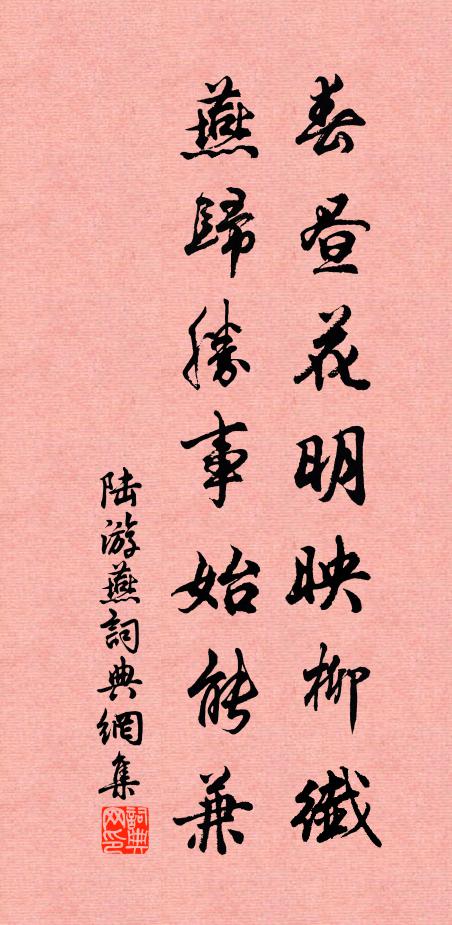 春昼花明映柳纖
燕歸勝事始能兼
陆游燕詞典網集
詞典网印